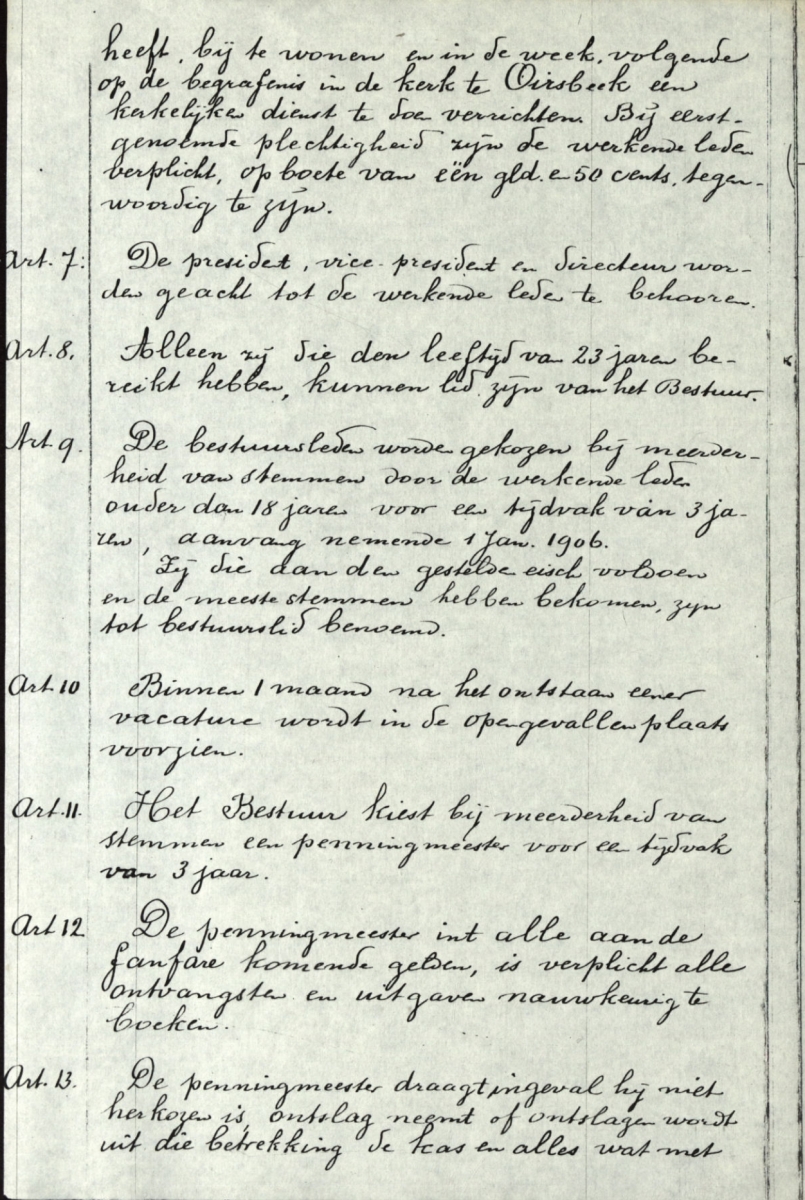 heeft, bij te wonen en in de week, volgende
op de begrafenis in de kerk te Oirsbeek een
kerkelijken dienst te doen verrichten. Bij eerst-
genoemde plechtigheid zijn de werkende leden
verplicht, op boete van één gld. en 50 cents, tegen-
woordig te zijn.
Art. 7: De president, vice-president en directeur wor-
den geacht tot de werkende leden te behooren.
Art. 8. Alleen zij die den leeftijd van 23 jaren be-
reikt hebben, kunnen lid zijn van het Bestuur.
Art. 9. De bestuursleden worden gekozen bij meerder-
heid van stemmen door de werkende leden
ouder dan 18 jaren voor een tijdvak van 3 ja-
ren, aanvang nemende 1 Jan. 1906.
Zij die aan den gestelden eisch voldoen
en de meeste stemmen hebben bekomen, zijn
tot bestuurslid benoemd.
Art. 10 Binnen 1 maand na het ontstaan eener
vacature wordt in de opengevallen plaats
voorzien.
Art. 11. Het Bestuur kiest bij meerderheid van
stemmen een penningmeester voor een tijdvak
van 3 jaar.
Art 12 De penningmeester int alle aan de
fanfare komende gelden, is verplicht alle
ontvangsten en uitgaven nauwkeurig te
boeken.
Art. 13. De penningmeester draagt ingeval hij niet
herkozen is, ontslag neemt of ontslagen wordt
uit die betrekking de kas en alles wat met